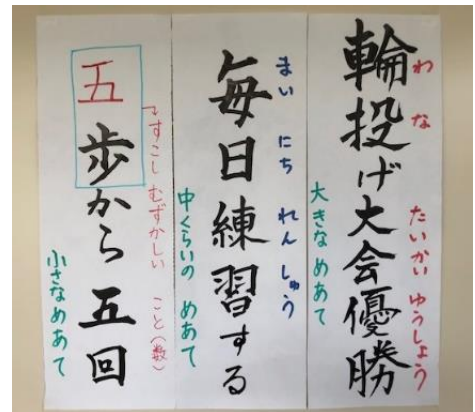 輪投げ大会優勝
わ な たいかい ゆうしょう
大きな めあて
毎日練習する
まい にち れん しゅう
中くらいの めあて
五歩から五回
すこし むずかしい こと(数)
小さなめあて